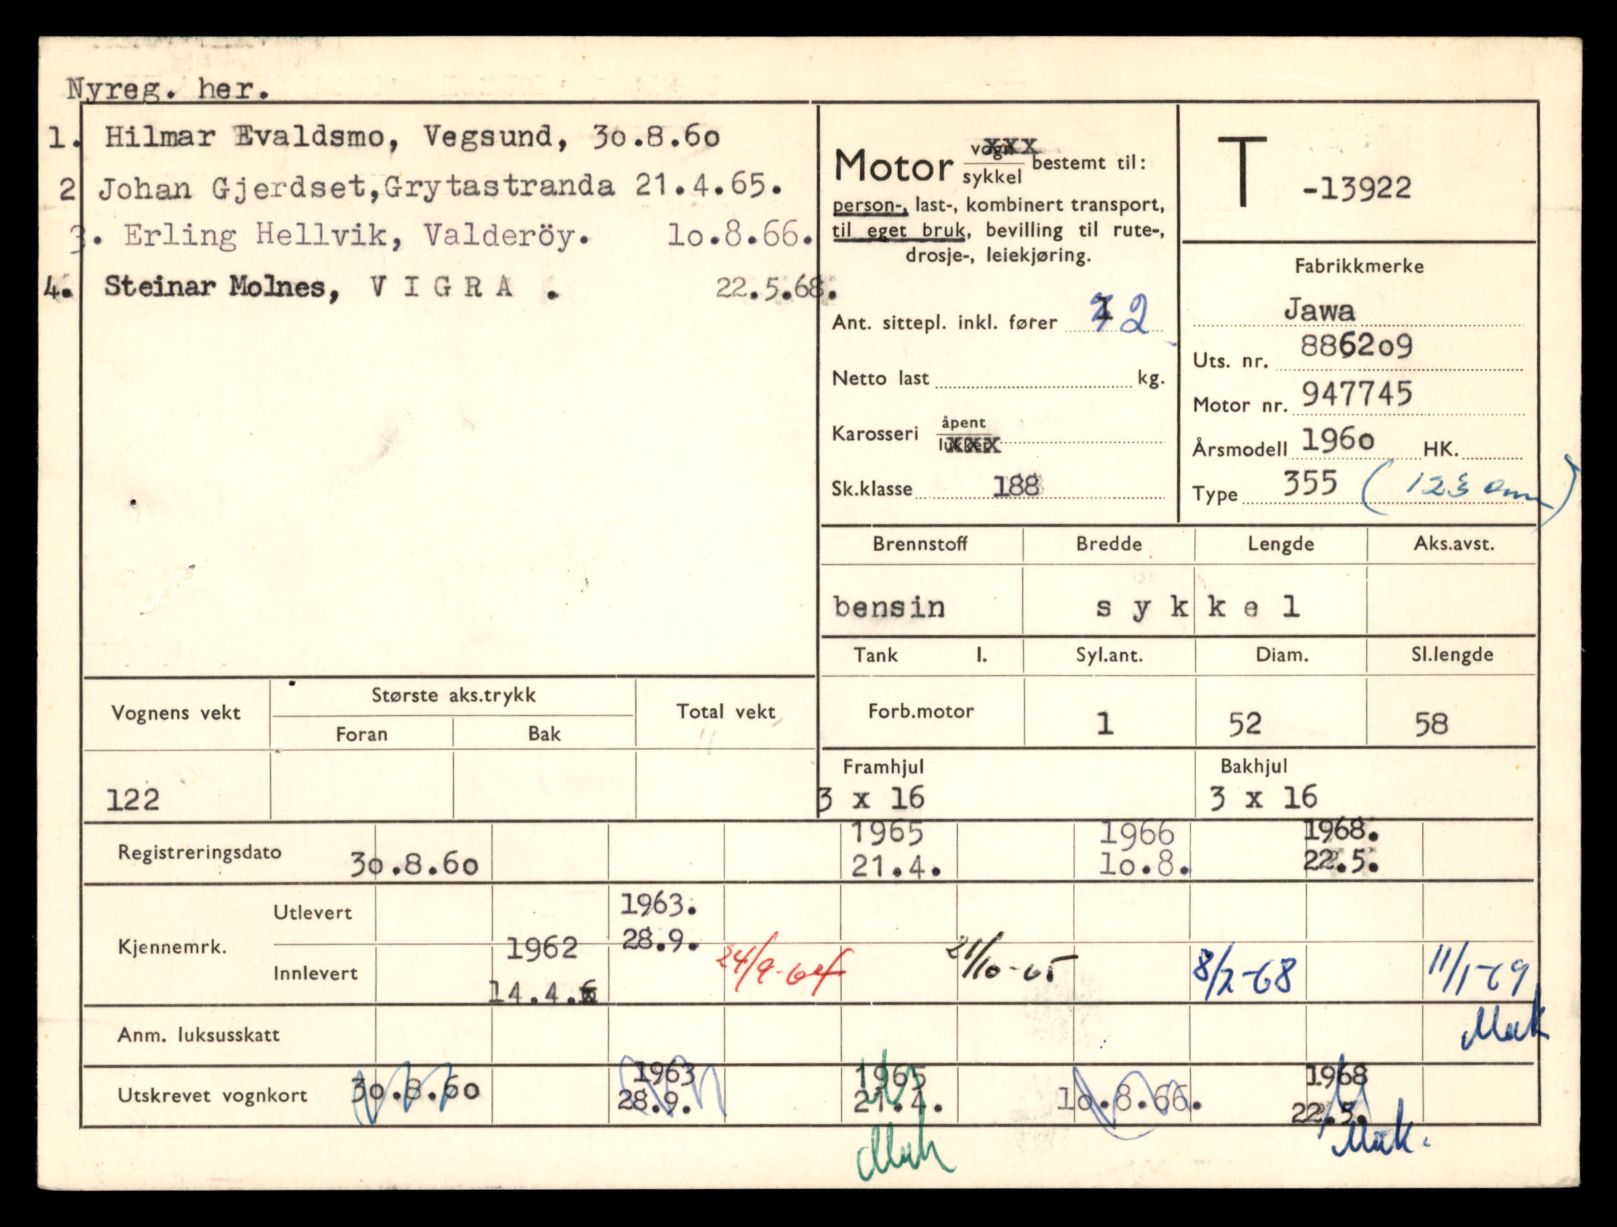 Nyreg. her.
1. Hilmar Evaldsmo, Vegsund, 3o.8.6o
2 Johan Gjerdset,Grytastranda 21.4.65.
3. Erling Hellvik, Valderöy. 1o.8.66.
4. Steinar Molnes, V I G R A . 22.5.68.
Motor vogn sykkel bestemt til:
person-, last-, kombinert transport,
til eget bruk, bevilling til rute-,
drosje-, leiekjøring.
Ant. sittepl. inkl. fører 2
Netto last kg.
Karosseri åpent
lukket
Sk.klasse 188
T -13922
Fabrikkmerke
Jawa
Uts. nr. 8862o9
Motor nr. 947745
Årsmodell 196o HK.
Type 355
Brennstoff Bredde Lengde Aks.avst.
bensin s y k k e l
Tank l. Syl.ant. Diam. Sl.lengde
Forb.motor 1 52 58
Framhjul Bakhjul
3 x 16 3 x 16
Vognens vekt Største aks.trykk Total vekt
Foran Bak
122
1965 1966 1968.
Registreringsdato 3o.8.6o 21.4. 1o.8. 22.5.
Utlevert 1963.
28.9.
Kjennemrk. 1962
Innlevert 14.4. 24/9-64 21/10-65 8/2-68 11/1-69
Anm. luksusskatt
1963 1965 1968
Utskrevet vognkort 3o.8.6o 28.9. 21.4. 1o.8.66. 22.5.